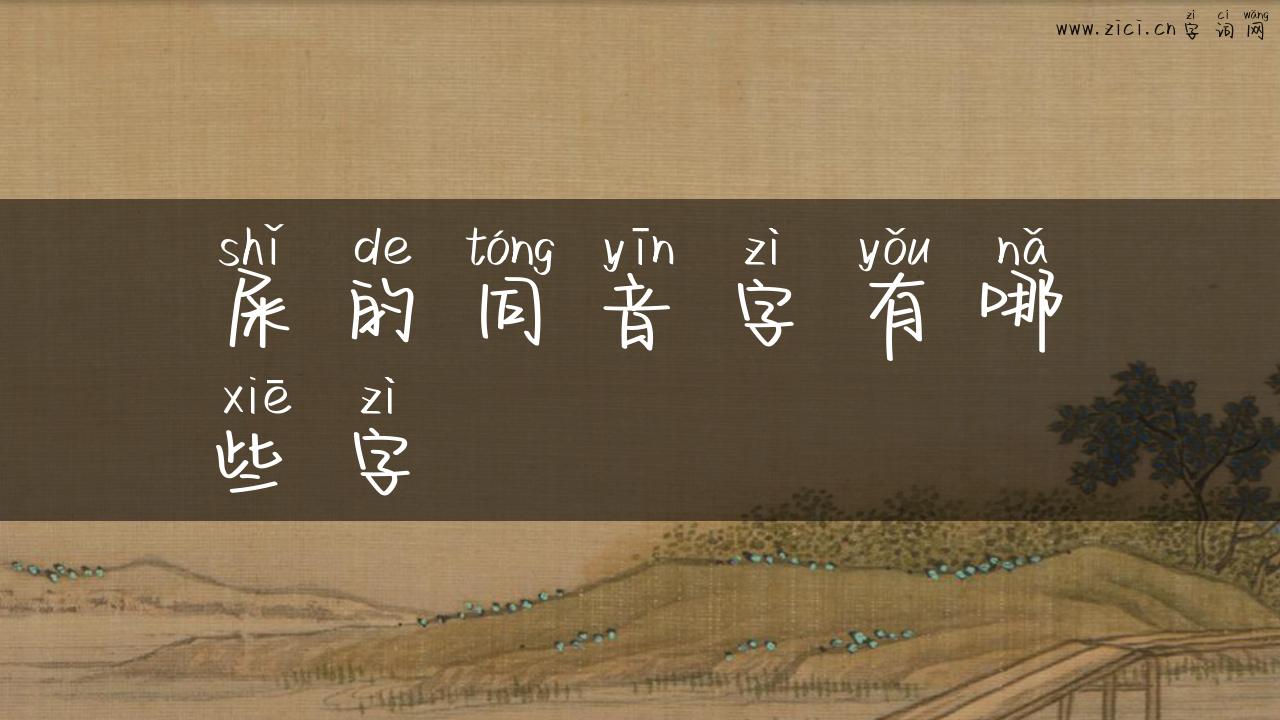 zì cí wǎng
www.zici.cn 字 词 网
shǐ de tóng yīn zì yǒu nǎ
屎 的 同 音 字 有 哪
xiē zì
些 字